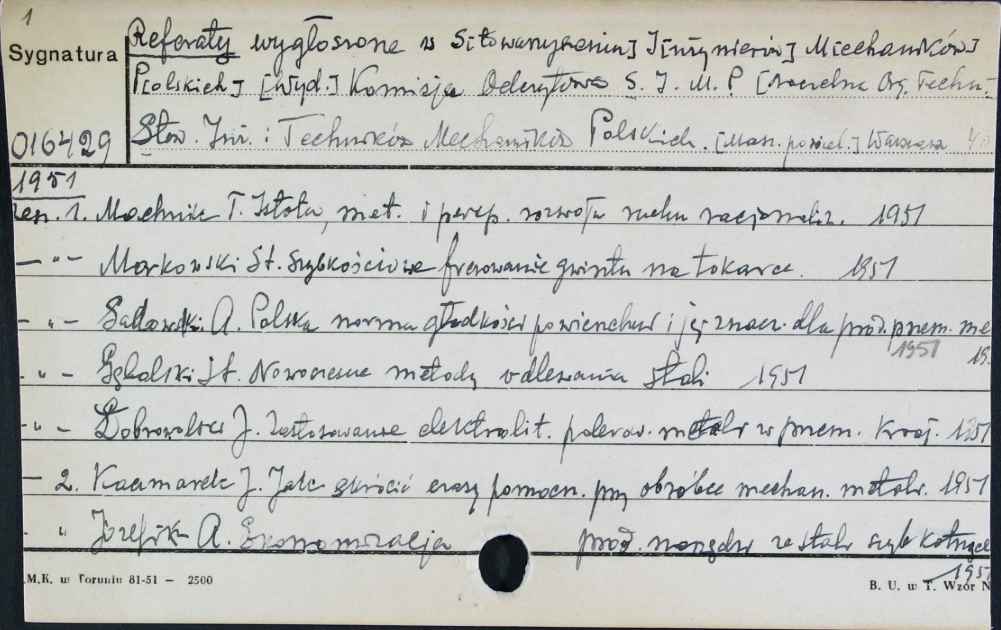 1
Sygnatura
Referaty wygłoszone w S[towarzyszeniu] I[nżynierów] M[echaników]
P[olskich] [Wyd.] Komisja Odczytowa S. I. M. P. [Naczelna Org. Techn.
016429
Stow. Inż. i Techników Mechaników Polskich. [Masz. powiel.] Warszawa
1951
zesz. 1. Machnik T. Istota, met. i persp. rozwoju ruchu racjonaliz. 1951
— " — Markowski St. Szybkościowe frezowanie gwintu na tokarce. 1951
— " — Sadowski A. Polska norma gładkości powierzchni i jej znacz. dla prod. przem. me
1951 19
— " — St. Nowoczesne metody odlewania stali 1951
— " — Dobrowolski J. Zastosowanie elektrolit. polerow. metali w przem. kraj. 1951
— 2. Kaczmarek J. Jak skrócić czasy pomocn. przy obróbce mechan. metali. 1951
" Józefik A. Ekonomizacja prod. narzędzi ze stali szybkotnącej
1951
.M.K. w Toruniu 81-51 — 2500
B. U. w T. Wzór N